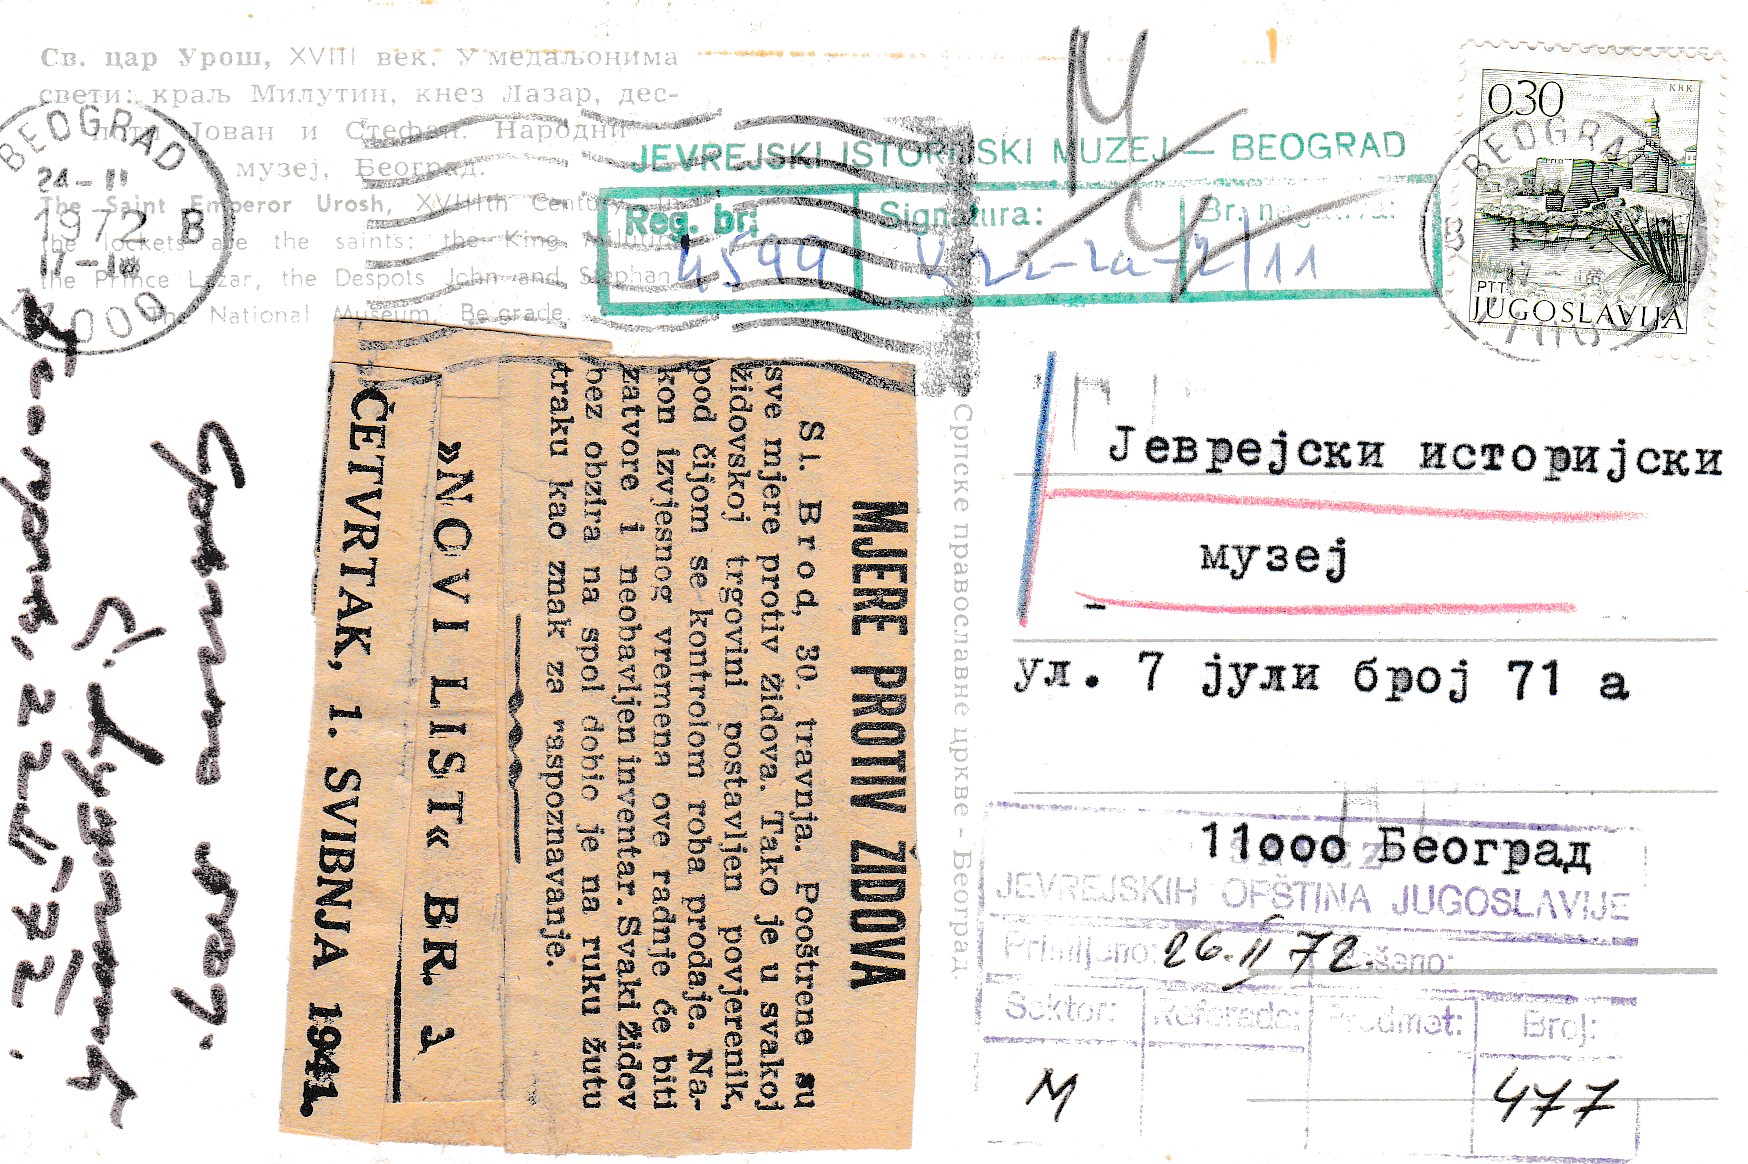 Св. цар Урош, XVIII век. У медаљонима
свети: краљ Милутин, кнез Лазар, дес-
поти Јован и Стефан. Народни
музеј, Београд.
The Saint Emperor Urosh, XVIIIth Century. In
the lockets are the saints: the King Milutin,
the Prince Lazar, the Despots John and Stephan.
The National Museum, Belgrade.
BEOGRAD
24-II
1972 B
17-18
11000
JEVREJSKI ISTORIJSKI MUZEJ — BEOGRAD
Reg. br:
4599
Signatura:
Br. negativa:
0.30
KRK
PTT
JUGOSLAVIJA
BEOGRAD
B
MJERE PROTIV ŽIDOVA
Sl. Brod, 30. travnja. Pooštrene su
sve mjere protiv židova. Tako je u svakoj
židovskoj trgovini postavljen povjerenik,
pod čijom se kontrolom roba prodaje. Na-
kon izvjesnog vremena ove radnje će biti
zatvore i neobavljen inventar. Svaki židov
bez obzira na spol dobio je na ruku žutu
traku kao znak za raspoznavanje.
»NOVI LIST« BR. 3
ČETVRTAK, 1. SVIBNJA 1941.
Српске православне цркве - Београд.
Јеврејски историјски
музеј
ул. 7 јули број 71 а
11000 Београд
SAVEZ
JEVREJSKIH OPŠTINA JUGOSLAVIJE
Primljeno: 26.II 72.
Rešeno:
Sektor:
Referada:
Predmet:
Broj:
M
477